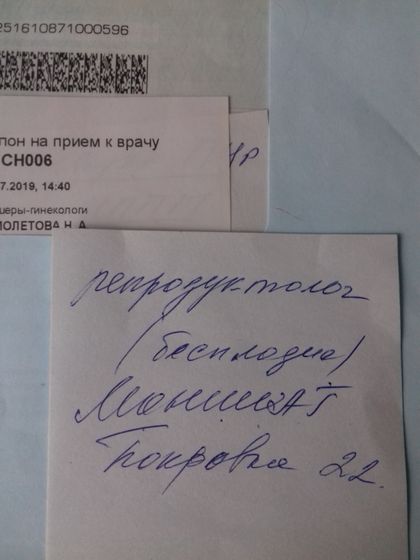 251610871000596
лон на прием к врачу
CH006
7.2019, 14:40
шеры-гинекологи
ИОЛЕТОВА Н.А.
репродуктолог
(бесплодие)
Покровка 22.